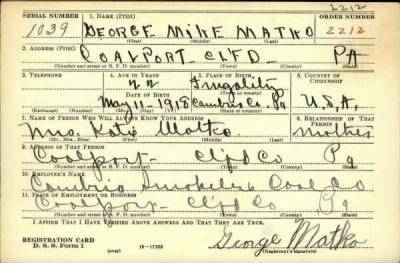 2212
SERIAL NUMBER 1. NAME (Print) ORDER NUMBER
1039 GEORGE MIKE MATKO 2212
(First) (Middle) (Last)
2. ADDRESS (Print)
COALPORT CLFD PA
(Number and street or R. F. D. number) (Town) (County) (State)
3. TELEPHONE 4. AGE IN YEARS 5. PLACE OF BIRTH 6. COUNTRY OF CITIZENSHIP
22
DATE OF BIRTH (Town or county)
May 11, 1918 Cambria Co. Pa U.S.A.
(Exchange) (Number) (Mo.) (Day) (Yr.) (State or country)
7. NAME OF PERSON WHO WILL ALWAYS KNOW YOUR ADDRESS 8. RELATIONSHIP OF THAT PERSON
Mrs. Katie Matko mother
(Mr., Mrs., Miss) (First) (Middle) (Last)
9. ADDRESS OF THAT PERSON
Coalport Clfd Co Pa
(Number and street or R. F. D. number) (Town) (County) (State)
10. EMPLOYER'S NAME
Cambria Smokeless Coal Co
11. PLACE OF EMPLOYMENT OR BUSINESS
Coalport Clfd Co Pa
(Number and street or R. F. D. number) (Town) (County) (State)
I AFFIRM THAT I HAVE VERIFIED ABOVE ANSWERS AND THAT THEY ARE TRUE.
REGISTRATION CARD
D. S. S. Form 1 (over) 16-17105 George Matko
(Registrant's signature)